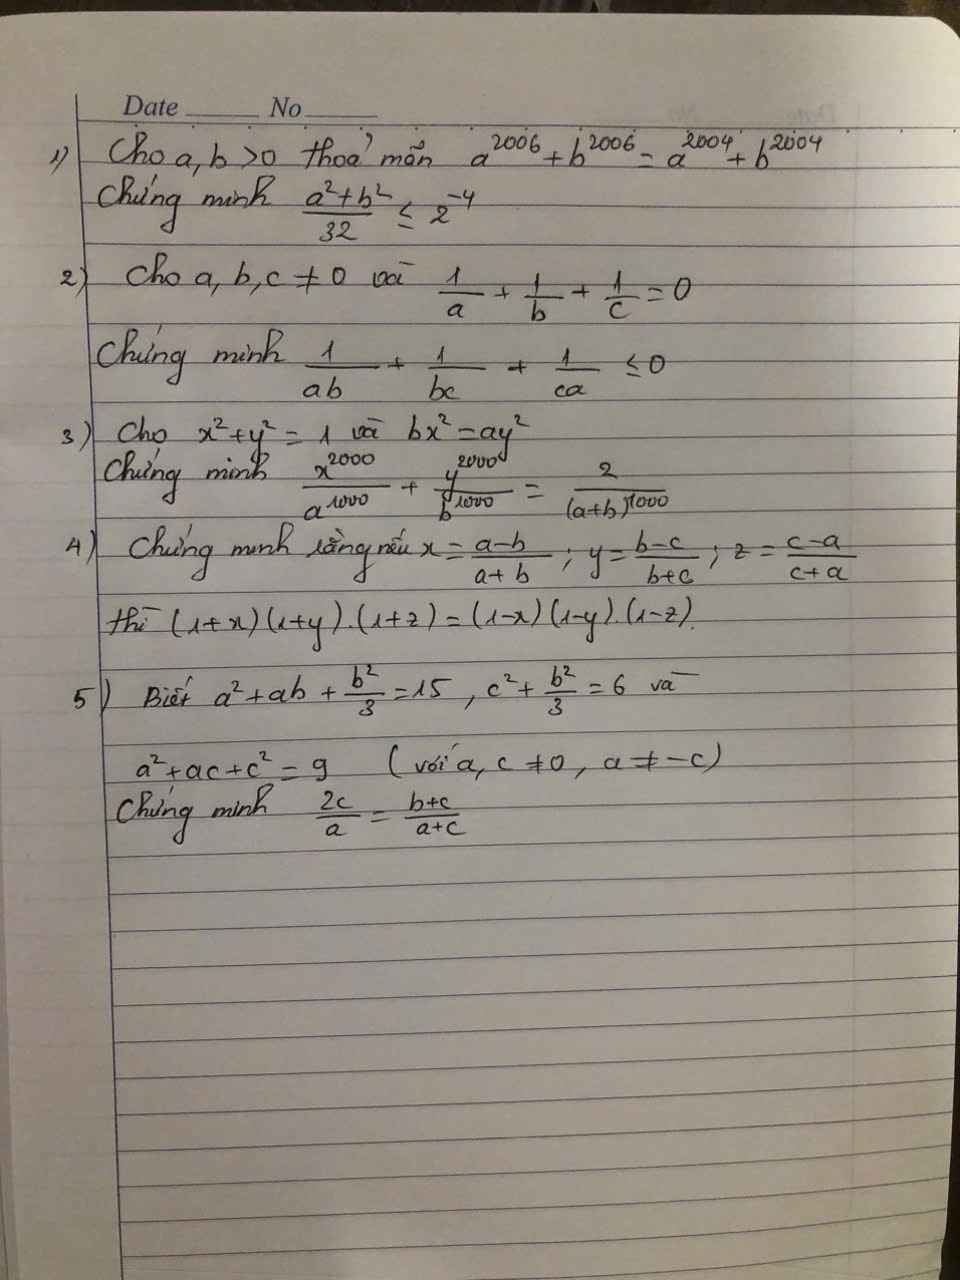 Date ____ No ____
1) Cho a, b > 0 thoả mãn a^2006 + b^2006 = a^2004 + b^2004
Chứng minh (a² + b²)/32 ≤ 2^-4
2) Cho a, b, c ≠ 0 và 1/a + 1/b + 1/c = 0
Chứng minh 1/ab + 1/bc + 1/ca ≤ 0
3) Cho x² + y² = 1 và bx² = ay²
Chứng minh x^2000/a^1000 + y^2000/b^1000 = 2/(a+b)^1000
4) Chứng minh rằng nếu x = (a-b)/(a+b) ; y = (b-c)/(b+c) ; z = (c-a)/(c+a)
thì (1+x)(1+y).(1+z) = (1-x)(1-y).(1-z).
5) Biết a² + ab + b²/3 = 15 , c² + b²/3 = 6 và
a² + ac + c² = 9 (với a, c ≠ 0, a ≠ -c)
Chứng minh 2c/a = (b+c)/(a+c)